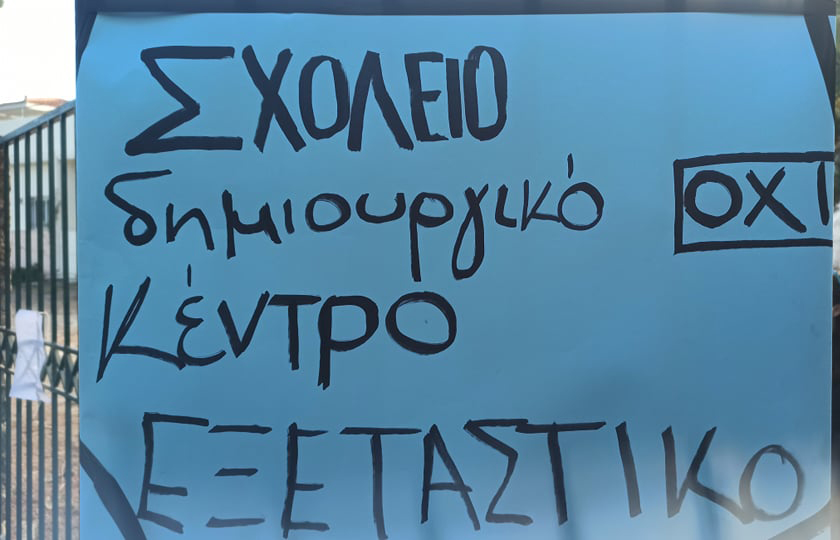 ΣΧΟΛΕΙΟ
δημιουργικό
ΟΧΙ
Κέντρο
ΕΞΕΤΑΣΤΙΚΟ